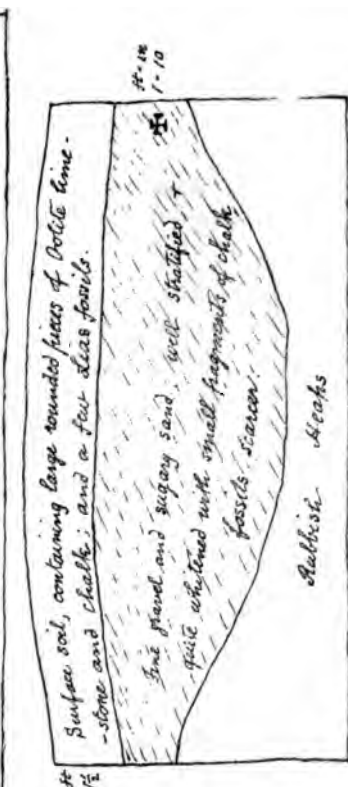 Surface soil, containing large rounded pieces of Oolite lime-
-stone and chalk; and a few Lias fossils.
Fine gravel and sugary sand, well stratified, +
quite whitened with small fragments of chalk
fossils scarce.
Rubbish Heaps
ft
1½
ft - in
1 - 10